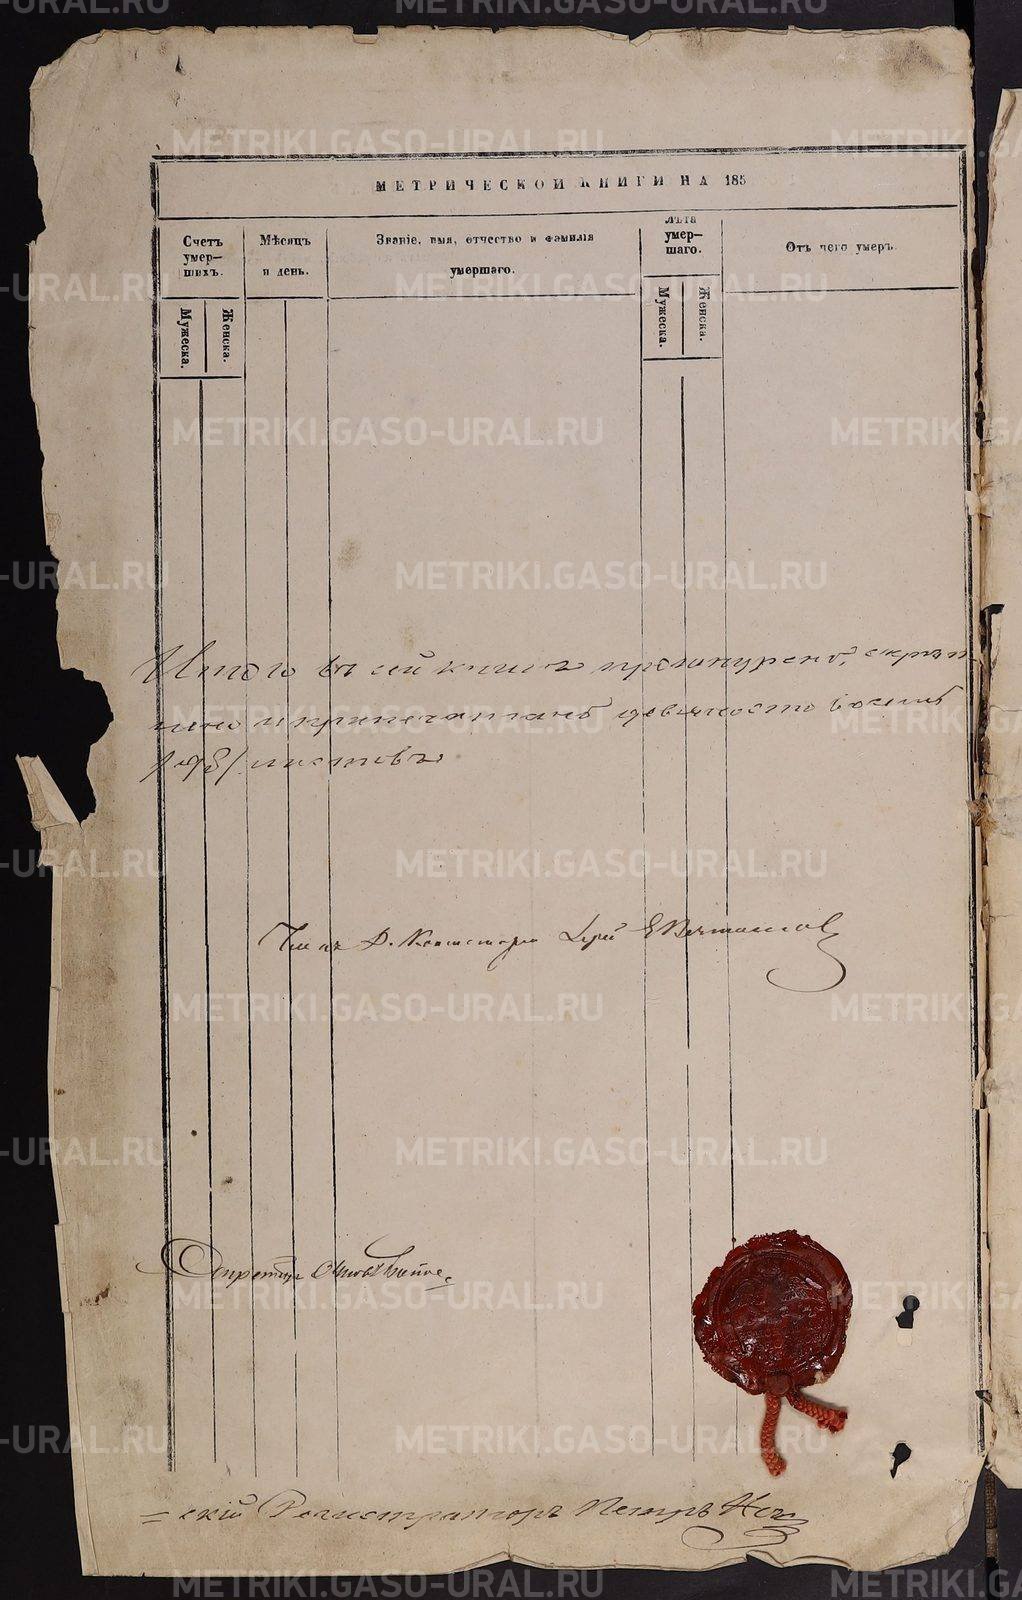 МЕТРИЧЕСКОЙ КНИГИ НА 185
Счетъ умер-шихъ.
Мужеска.
Женска.
Мѣсяцъ и день.
Званіе, имя, отчество и фамилія умершаго.
Лѣта умер-шаго.
Мужеска.
Женска.
Отъ чего умеръ.
Итого въ сей книгѣ прошнуровано, скрѣп
лено и припечатано девяносто восемь
/98/ листовъ
Члѣнъ Д. Консисторіи Іерей
Секретарь
=скій Регистраторъ Петръ
METRIKI.GASO-URAL.RU